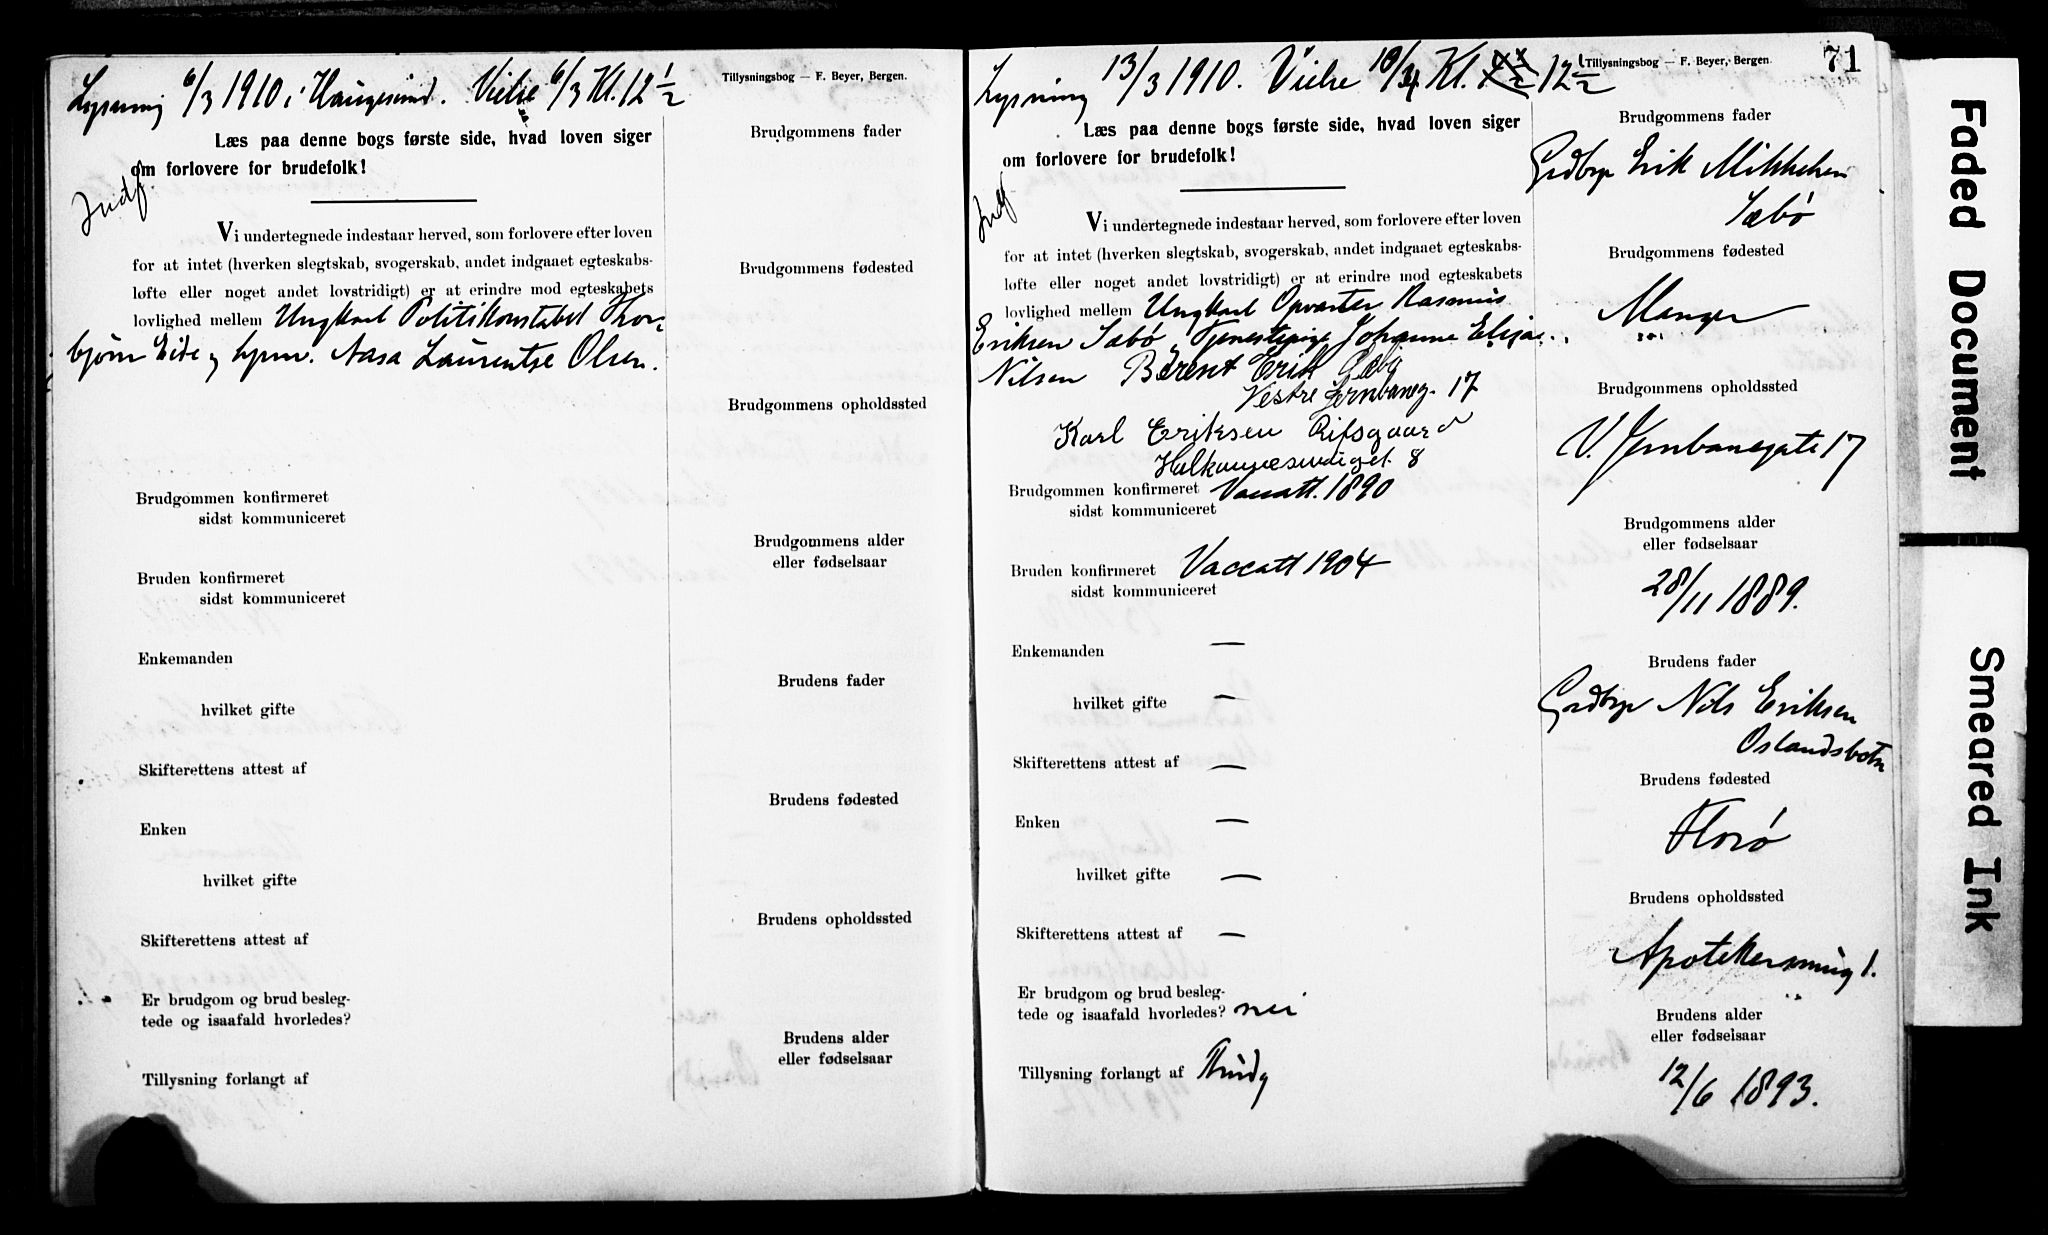 Lysning 6/3 1910 i Haugesund. Vielse 6/3 Kl. 12 1/2
Tillysningsbog — F. Beyer, Bergen.
Læs paa denne bogs første side, hvad loven siger
om forlovere for brudefolk!
Indf.
Vi undertegnede indestaar herved, som forlovere efter loven
for at intet (hverken slegtskab, svogerskab, andet indgaaet egteskabs-
løfte eller noget andet lovstridigt) er at erindre mod egteskabets
lovlighed mellem Ungkarl Politikonstabel Thor-
bjørn Eide og hjmv. Aasa Laurentse Olsen.
Brudgommen konfirmeret
sidst kommuniceret
Bruden konfirmeret
sidst kommuniceret
Enkemanden
hvilket gifte
Skifterettens attest af
Enken
hvilket gifte
Skifterettens attest af
Er brudgom og brud besleg-
tede og isaafald hvorledes?
Tillysning forlangt af
Brudgommens fader
Brudgommens fødested
Brudgommens opholdssted
Brudgommens alder
eller fødselsaar
Brudens fader
Brudens fødested
Brudens opholdssted
Brudens alder
eller fødselsaar
71
Lysning 13/3 1910. Vielse 10/4 Kl. 12 1/2
Tillysningsbog — F. Beyer, Bergen.
Læs paa denne bogs første side, hvad loven siger
om forlovere for brudefolk!
Vi undertegnede indestaar herved, som forlovere efter loven
for at intet (hverken slegtskab, svogerskab, andet indgaaet egteskabs-
løfte eller noget andet lovstridigt) er at erindre mod egteskabets
lovlighed mellem Ungkarl Opvarter Rasmus
Eriksen Sæbø, Tjenestepige Johanne Elisæ
Nilsen Berent Erik Sæbø
Vestre Jernbaneg. 17
Karl Eriksen Rifsgaard
8
Brudgommen konfirmeret Vaccatt. 1890
sidst kommuniceret
Bruden konfirmeret Vaccatt 1904
sidst kommuniceret
Enkemanden —
hvilket gifte —
Skifterettens attest af —
Enken —
hvilket gifte —
Skifterettens attest af —
Er brudgom og brud besleg-
tede og isaafald hvorledes? nei
Tillysning forlangt af Brudg
Brudgommens fader
Grdbr Erik Mikkelsen
Sæbø
Brudgommens fødested
Manger
Brudgommens opholdssted
V. Jernbanegate 17
Brudgommens alder
eller fødselsaar
28/11 1889.
Brudens fader
Grdbr Nils Eriksen
Oslandsbotn
Brudens fødested
Florø
Brudens opholdssted
Apotekersmug 1.
Brudens alder
eller fødselsaar
12/6 1893.
Faded Document
Smeared Ink